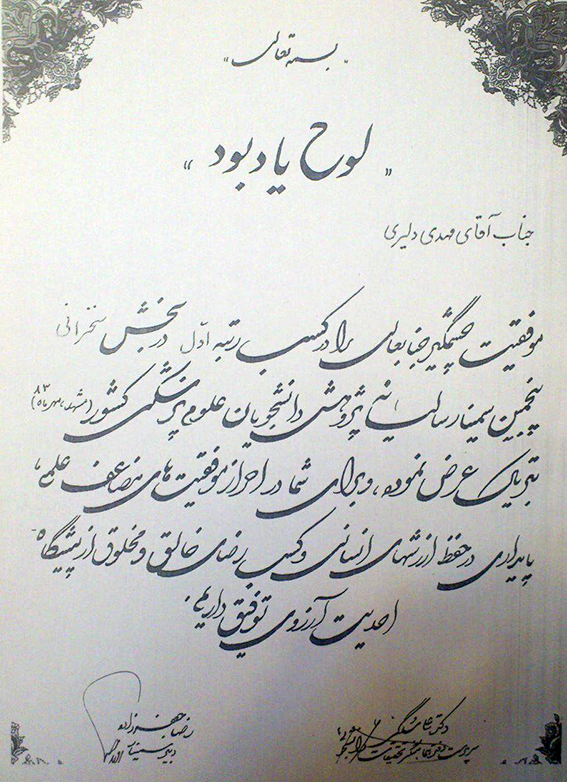 "بسمه تعالی"
"لوح یادبود"
جناب آقای مهدی دلیری
موفقیت چشمگیر جنابعالی را در کسب رتبه اول در بخش سخنرانی
پنجمین سمینار سالیانه پژوهشی دانشجویان علوم پزشکی کشور (مشهد، مهرماه ۸۳)
تبریک عرض نموده، و برای شما در احراز موفقیت های مضاعف علمی،
پایداری در حفظ ارزشهای انسانی و کسب رضای خالق و مخلوق از پیشگاه
احدیت آرزوی توفیق داریم.
دکتر
سرپرست تحقیقات
رضا جعفرزاده
دبیر سمینار